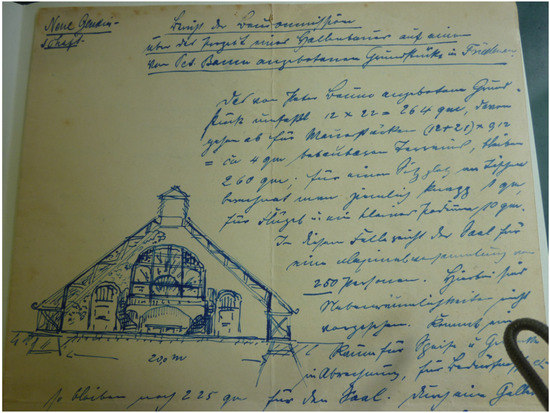 Neue Gemein-
schaft.
Bericht der Baukommission
über das Projekt eines Hallenbaues auf einem
von Pet. Baum angebotenen Grundstücke in
Das von Peter Baum angebotene Grund-
stück umfaßt 12 x 22 = 264 qm, davon
gehen ab für Mauerstärken
= ca 4 qm bebaubares Terrain, bleiben
260 qm; für einen Sitzplatz an Tischen
berechnet man ziemlich knapp 1 qm
für Flügel u. ein kleines Podium 10 qm.
In diesem Falle reicht der Saal für
eine Maximalversammlung von
250 Personen. Hierbei sind
Nebenräumlichkeiten nicht
vorgesehen. Kommt ein
Raum für Speise u.
in Abrechnung, für
so bleiben noch 225 qm für den Saal. Durch eine
20,0 m